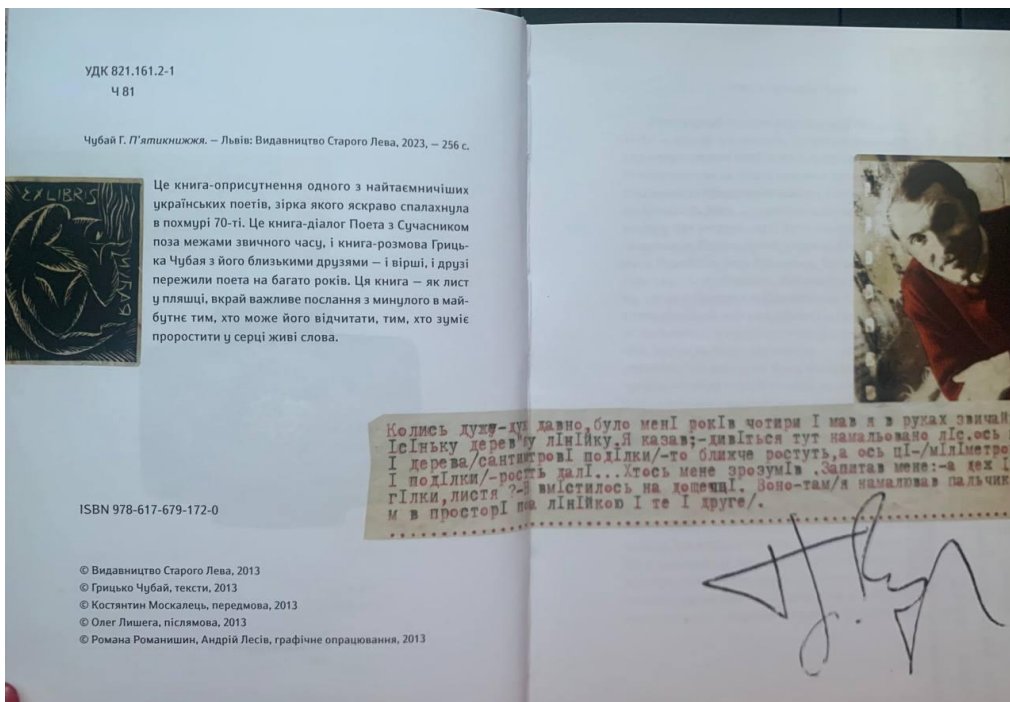 УДК 821.161.2-1
Ч 81
Чубай Г. П'ятикнижжя. – Львів: Видавництво Старого Лева, 2023, – 256 с.
EX LIBRIS
ЧУБАЯ
Це книга-оприсутнення одного з найтаємничіших
українських поетів, зірка якого яскраво спалахнула
в похмурі 70-ті. Це книга-діалог Поета з Сучасником
поза межами звичного часу, і книга-розмова Гриць-
ка Чубая з його близькими друзями – і вірші, і друзі
пережили поета на багато років. Ця книга – як лист
у пляшці, вкрай важливе послання з минулого в май-
бутнє тим, хто може його відчитати, тим, хто зуміє
проростити у серці живі слова.
ISBN 978-617-679-172-0
© Видавництво Старого Лева, 2013
© Грицько Чубай, тексти, 2013
© Костянтин Москалець, передмова, 2013
© Олег Лишега, післямова, 2013
© Романа Романишин, Андрій Лесів, графічне опрацювання, 2013
Колись дуже-дуже давно,було мені років чотири І мав я в руках звичай
ІсІньку дерев'  у лІнІйку.Я казав:-дивІться тут намальовано лІс.ось
І дерева/сантиметровІ подІлки/-то ближче ростуть,а ось цІ-/мІлІметро
І подІлки/-ростть далІ...Хтось мене зрозумІв .Запитав мене:-а деж І
гІлки,листя ?-  вмІстилось на дощечцІ. Воно-там/я намалював пальчик
м в просторІ   лІнІйкою І те І друге/.